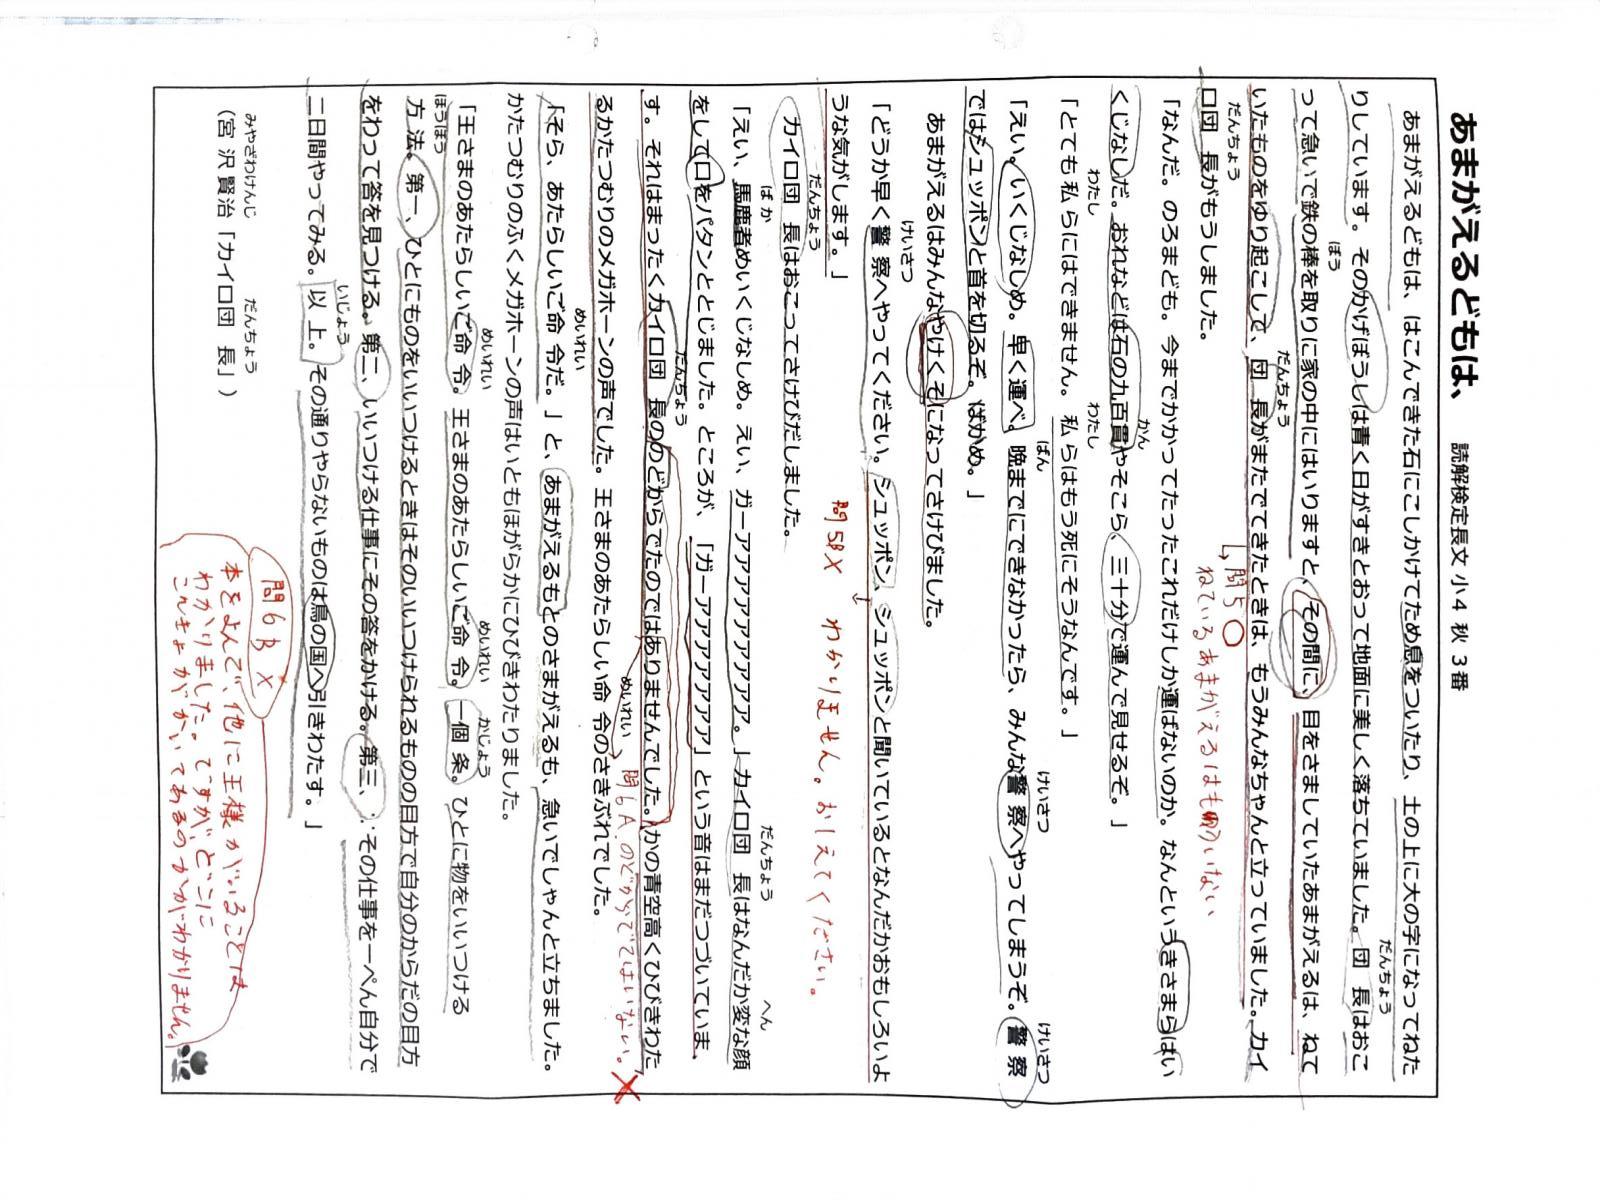 あまがえるどもは、
読解検定長文 小4 秋 3番
あまがえるどもは、はこんできた石にこしかけてため息をついたり、土の上に大の字になってねた
りしています。そのかげぼうしは青く日がすきとおって地面に美しく落ちていました。団長はおこ
だんちょう
って急いで鉄の棒を取りに家の中にはいりますと、その間に、目をさましていたあまがえるは、ねて
ぼう
いたものをゆり起こして、団長がまたでてきたときは、もうみんなちゃんと立っていました。カイ
だんちょう
ロ団長がもうしました。
だんちょう
問5○
ねているあまがえるはもういない
「なんだ。のろまども。今までかかってたったこれだけしか運ばないのか。なんというきさまらはい
くじなしだ。おれなどは石の九百貫やそこら、三十分で運んで見せるぞ。」
かん
「とても私らにはできません。私らはもう死にそうなんです。」
わたし わたし
「えい。いくじなしめ。早く運べ。晩までにできなかったら、みんな警察へやってしまうぞ。警察
ばん けいさつ けいさつ
ではシュッポンと首を切るぞ。ばかめ。」
あまがえるはみんなやけくそになってさけびました。
「どうか早く警察へやってください。シュッポン、シュッポンと聞いているとなんだかおもしろいよ
けいさつ
うな気がします。」
問5B× わかりません。おしえてください。
カイロ団長はおこってさけびだしました。
だんちょう
「えい、馬鹿者めいくじなしめ。えい、ガーアアアアアアアアア。」カイロ団長はなんだか変な顔
ばか だんちょう へん
をして口をパタンととじました。ところが、「ガーアアアアアアア」という音はまだつづいていま
す。それはまったくカイロ団長ののどからでたのではありませんでした。かの青空高くひびきわた
だんちょう
るかたつむりのメガホーンの声でした。王さまのあたらしい命令のさきぶれでした。
めいれい
問6A のどからでてはいない。×
「そら、あたらしいご命令だ。」と、あまがえるもとのさまがえるも、急いでしゃんと立ちました。
めいれい
かたつむりのふくメガホーンの声はいともほがらかにひびきわたりました。
「王さまのあたらしいご命令。王さまのあたらしいご命令。一個条。ひとに物をいいつける
めいれい めいれい かじょう
方法。第一、ひとにものをいいつけるときはそのいいつけられるものの目方で自分のからだの目方
ほうほう
をわって答を見つける。第二、いいつける仕事にその答をかける。第三、その仕事を一ぺん自分で
二日間やってみる。以上。その通りやらないものは鳥の国へ引きわたす。」
いじょう
（宮沢賢治「カイロ団長」）
みやざわけんじ だんちょう
問6B×
本をよんで、他に王様がいることは
わかりました。ですが、どこに
こんきょがかいてあるのかがわかりません。